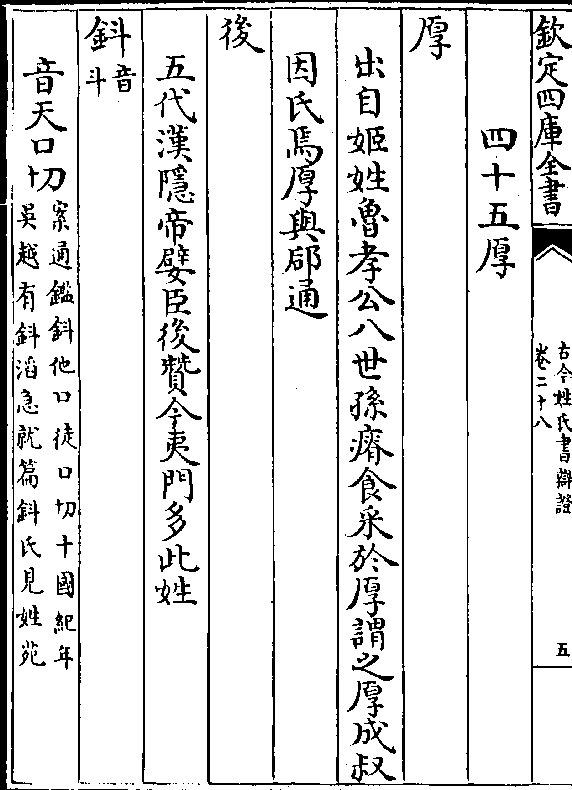 欽定四庫全書
古今姓氏書辯證
卷二十八
五
四十五厚
厚
出自姬姓魯孝公八世孫瘠食采於厚謂之厚成叔
因氏焉厚與郈通
後
五代漢隱帝嬖臣後贊今夷門多此姓
鈄音
斗
音天口切案通鑑鈄他口徒口切十國紀年
吳越有鈄滔急就篇鈄氏見姓苑